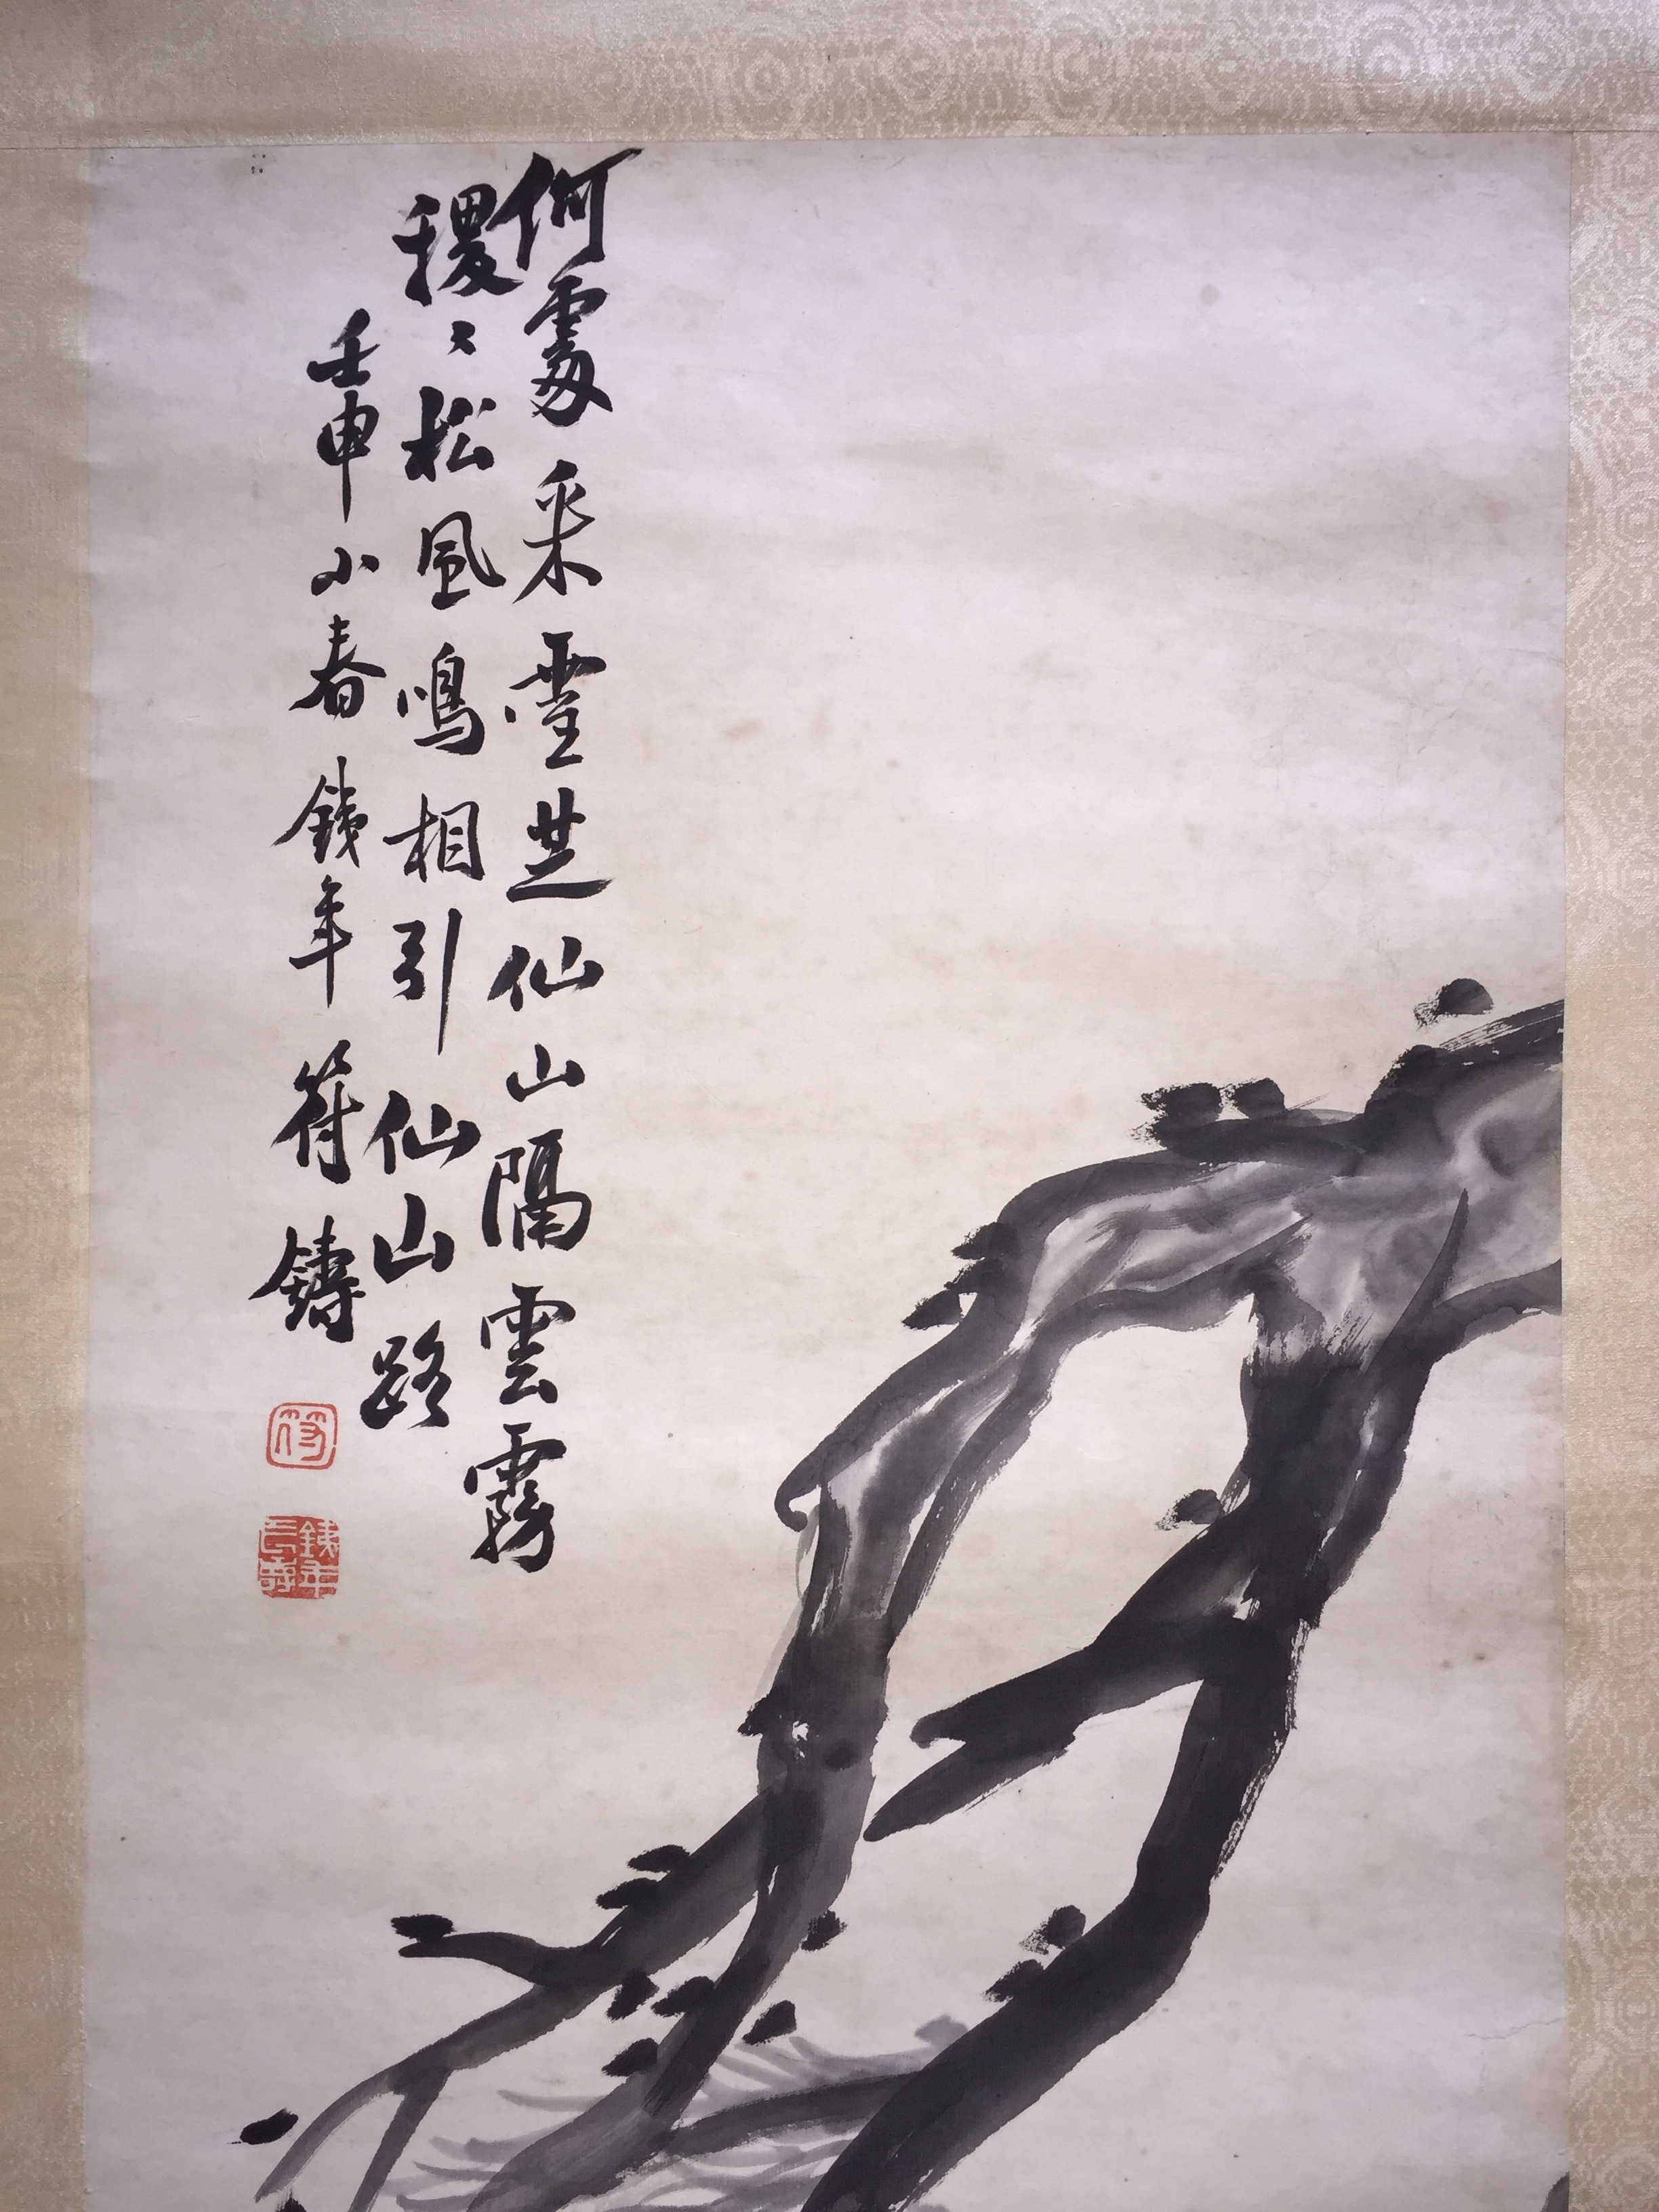 何處采靈芝仙山隔雲霧
稷〻松風鳴相引仙山路
壬申小春鐵年符鑄
符
鐵年長壽